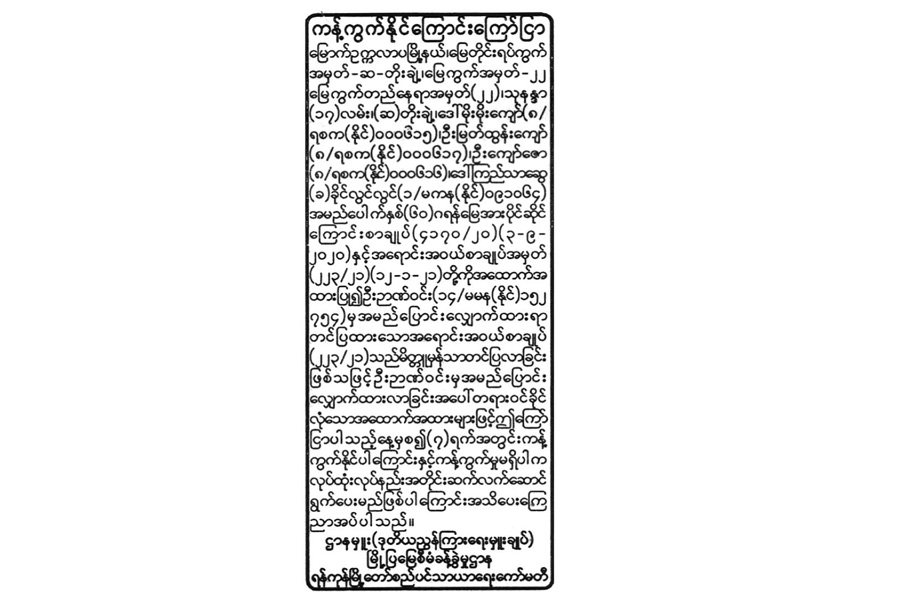 ကန့်ကွက်နိုင်ကြောင်းကြော်ငြာ
မြောက်ဥက္ကလာပမြို့နယ်၊မြေတိုင်းရပ်ကွက်
အမှတ်-ဆ-တိုးချဲ့၊မြေကွက်အမှတ်-၂၂
မြေကွက်တည်နေရာအမှတ်(၂၂)၊သုနန္ဒာ
(၁၇)လမ်း၊(ဆ)တိုးချဲ့၊ဒေါ်မိုးမိုးကျော်(၈/
ရစက(နိုင်)၀၀၀၆၁၅)၊ဦးမြတ်ထွန်းကျော်
(၈/ရစက(နိုင်)၀၀၀၆၁၇)၊ဦးကျော်ဇော
(၈/ရစက(နိုင်)၀၀၀၆၁၆)၊ဒေါ်ကြည်သာဆွေ
(ခ)ခိုင်လွင်လွင်(၁/မကန(နိုင်)၀၉၁၀၆၄)
အမည်ပေါက်နှစ်(၆၀)ဂရန်မြေအားပိုင်ဆိုင်
ကြောင်းစာချုပ်(၄၁၇၀/၂၀)(၃-၉-
၂၀၂၀)နှင့်အရောင်းအဝယ်စာချုပ်အမှတ်
(၂၂၃/၂၁)(၁၂-၁-၂၁)တို့ကိုအထောက်အ
ထားပြု၍ဦးဉာဏ်ဝင်း(၁၄/မမန(နိုင်)၁၅၂
၇၅၄)မှအမည်ပြောင်းလျှောက်ထားရာ
တင်ပြထားသောအရောင်းအဝယ်စာချုပ်
(၂၂၃/၂၁)သည်မိတ္တူမှန်သာတင်ပြလာခြင်း
ဖြစ်သဖြင့်ဦးဉာဏ်ဝင်းမှအမည်ပြောင်း
လျှောက်ထားလာခြင်းအပေါ်တရားဝင်ခိုင်
လုံသောအထောက်အထားများဖြင့်ဤကြော်
ငြာပါသည့်နေ့မှစ၍(၇)ရက်အတွင်းကန့်
ကွက်နိုင်ပါကြောင်းနှင့်ကန့်ကွက်မှုမရှိပါက
လုပ်ထုံးလုပ်နည်းအတိုင်းဆက်လက်ဆောင်
ရွက်ပေးမည်ဖြစ်ပါကြောင်းအသိပေးကြေ
ညာအပ်ပါသည်။
ဌာနမှူး(ဒုတိယညွှန်ကြားရေးမှူးချုပ်)
မြို့ပြမြေစီမံခန့်ခွဲမှုဌာန
ရန်ကုန်မြို့တော်စည်ပင်သာယာရေးကော်မတီ